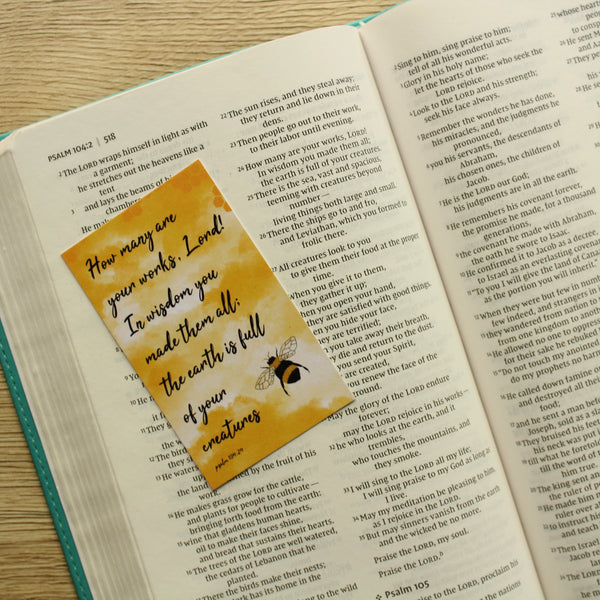 PSALM 104:2 | 518
2 The LORD wraps himself in light as with
a garment;
he stretches out the heavens like a
tent
3 and lays the beams of his
chambers
He mak
How many are
your works, Lord!
In wisdom you
made them all;
the earth is full
of your
creatures
psalm 104:24
by the fruit of his
14 He makes grass grow for the cattle,
and plants for people to cultivate—
bringing forth food from the earth:
15 wine that gladdens human hearts,
oil to make their faces shine,
and bread that sustains their hearts.
16 The trees of the LORD are well watered,
the cedars of Lebanon that he
planted.
17 There the birds make their nests;
has its home in the
22 The sun rises, and they steal away;
they return and lie down in their
dens.
23 Then people go out to their work,
to their labor until evening.
24 How many are your works, LORD!
In wisdom you made them all;
the earth is full of your creatures.
25 There is the sea, vast and spacious,
teeming with creatures beyond
number—
living things both large and small.
26 There the ships go to and fro,
and Leviathan, which you formed to
frolic there.
27 All creatures look to you
to give them their food at the proper
time.
When you give it to them,
they gather it up;
when you open your hand,
they are satisfied with good things.
you hide your face,
are terrified;
you take away their breath,
die and return to the dust.
you send your Spirit,
are created,
you renew the face of the
May the glory of the LORD endure
forever;
may the LORD rejoice in his works—
he who looks at the earth, and it
trembles,
who touches the mountains, and
they smoke.
33 I will sing to the LORD all my life;
I will sing praise to my God as long as
I live.
34 May my meditation be pleasing to him,
as I rejoice in the LORD.
35 But may sinners vanish from the earth
and the wicked be no more.
Praise the LORD, my soul.
Praise the LORD.
Psalm 105
to the LORD, proclaim his
the nations
2 Sing to him, sing praise to him;
tell of all his wonderful acts.
3 Glory in his holy name;
let the hearts of those who seek the
LORD rejoice.
4 Look to the LORD and his strength;
seek his face always.
5 Remember the wonders he has done,
his miracles, and the judgments he
pronounced,
6 you his servants, the descendants of
Abraham,
his chosen ones, the children of
Jacob.
7 He is the LORD our God;
his judgments are in all the earth.
8 He remembers his covenant forever,
the promise he made, for a thousand
generations,
9 the covenant he made with Abraham,
the oath he swore to Isaac.
10 He confirmed it to Jacob as a decree,
to Israel as an everlasting covenant:
11 "To you I will give the land of Canaan
as the portion you will inherit."
12 When they were but few in number,
few indeed, and strangers in it,
13 they wandered from nation to
from one kingdom to another
14 He allowed no one to oppress
for their sake he rebuked
15 "Do not touch my anointed
do my prophets no harm
16 He called down famine on
and destroyed all their
food;
17 and he sent a man before
Joseph, sold as a slave
18 They bruised his feet
his neck was put
19 till what he foretold
till the word of
20 The king sent and
the ruler of
21 He made him
ruler over
22 to instruct
and teach
23 Then Israel
25 whose hearts